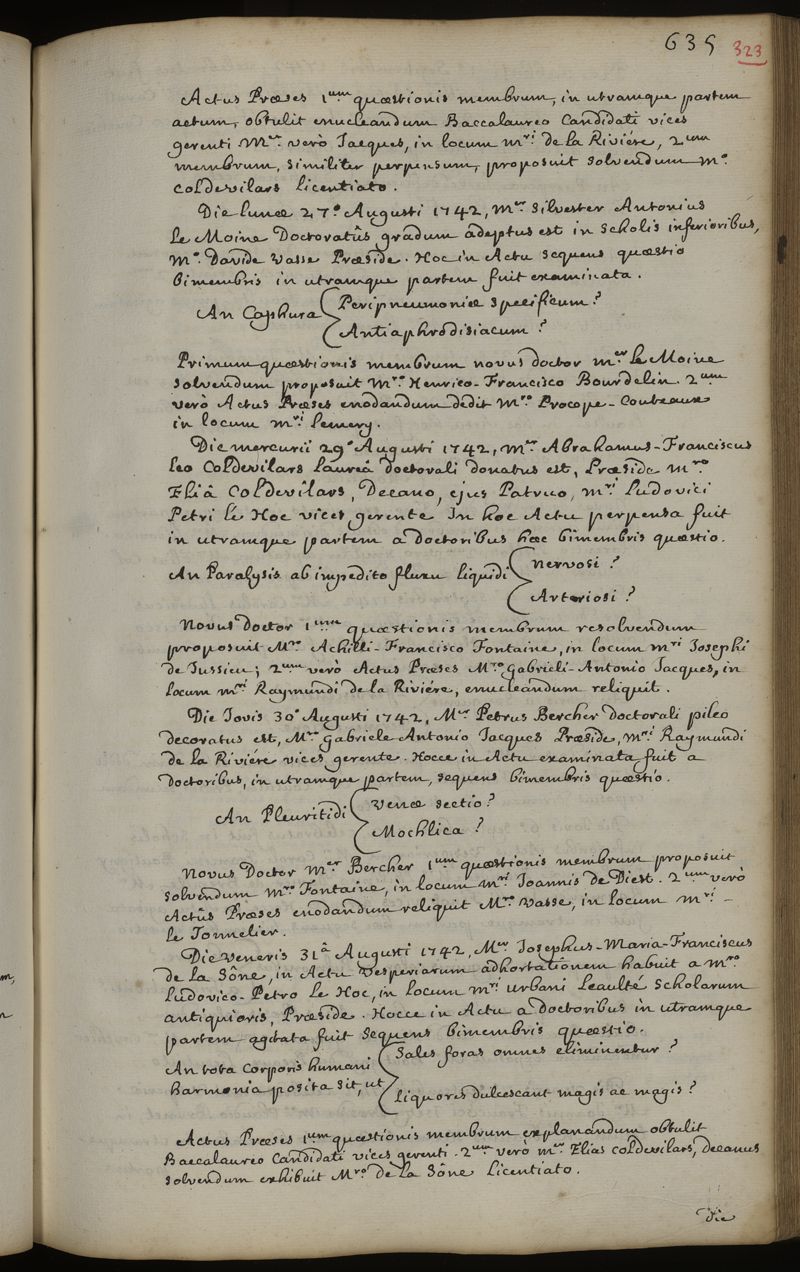 635 323
Actus Præses 1um quæstionis membrum, in utramque partem
actum, obtulit enucleandum Baccalaureo Candidati vices
gerenti Mer verò Jacques, in locum mri de la Riviére, 2um
membrum, similiter perpensum, proposuit solvendum mo
Coldevilars licentiato.
Die lunæ 27o Augusti 1742, Mer Silvester Antonius
Le Moine Doctoratûs gradum adeptus est in scholis inferioribus,
Mo Davide Vasse Præside. Hoc in Actu sequens quæstio
bimembris in utramque partem fuit examinata.
An Caphura { Peripneumoniæ specificum?
Antiaphrodisiacum?
Primum quæstionis membrum novus doctor mer le Moine
solvendum proposuit Mro Henrico-Francisco Bourdelin. 2um
verò Actus Præses enodandum dedit Mro Procope-Couteaux
in locum mri Lemery.
Die mercurii 29o Augusti 1742, mer Abrahamus-Franciscus
Leo Coldevilars laureâ doctorali donatus est, Præside mro
Eliâ Coldevilars, Decano, ejus Patruo, mri Ludovici
Petri le Hoc vices gerente In hoc Actu perpensa fuit
in utramque partem a doctoribus hæc bimembris quæstio.
An Paralysis ab impedito fluxu liquidi { nervosi?
Arteriosi?
Novus doctor 1um quæstionis membrum resolvendum
proposuit Mro Achilli-Francisco Fontaine, in locum mri Josephi
de Jussieu; 2um verò Actus Præses Mro Gabrieli-Antonio Jacques, in
locum mri Raymundi de la Riviére, enucleandum reliquit.
Die Jovis 30o Augusti 1742, Mer Petrus Bercher doctorali pileo
decoratus est, Mro Gabriele Antonio Jacques Præside, Mri Raymundi
de la Riviére vices gerente. Hocce in Actu examinata fuit a
doctoribus, in utramque partem, sequens bimembris quæstio.
An Pleuritidi { venæ sectio?
Mochlica?
Novus Doctor Mer Bercher 1um quæstionis membrum proposuit
solvendum mro Fontaine, in locum mri Joannis de Diest. 2um verò
Actûs Præses enodandum reliquit Mro Vasse, in locum mri -
le Tonnelier.
Die veneris 31â Augusti 1742, Mer Josephus-Maria-Franciscus
de la Sône, in Actu vesperiarum adhortationem habuit a mro
Ludovico-Petro le Hoc, in locum mri urbani Leaulté scholarum
antiquioris, Præside. Hocce in Actu a doctoribus in utramque
partem agitata fuit sequens bimembris quæstio.
An tota corporis humani { Sales foras omnes eliminentur?
harmonia posita sit, ut { liquores dulcescant magis ac magis?
Actus Præses 1um quæstionis membrum explanandum obtulit
Baccalaureo Candidati vices gerenti. 2um verò mer Elias coldevilars, decanus
solvendum exhibuit Mro de la Sône licentiato.
die